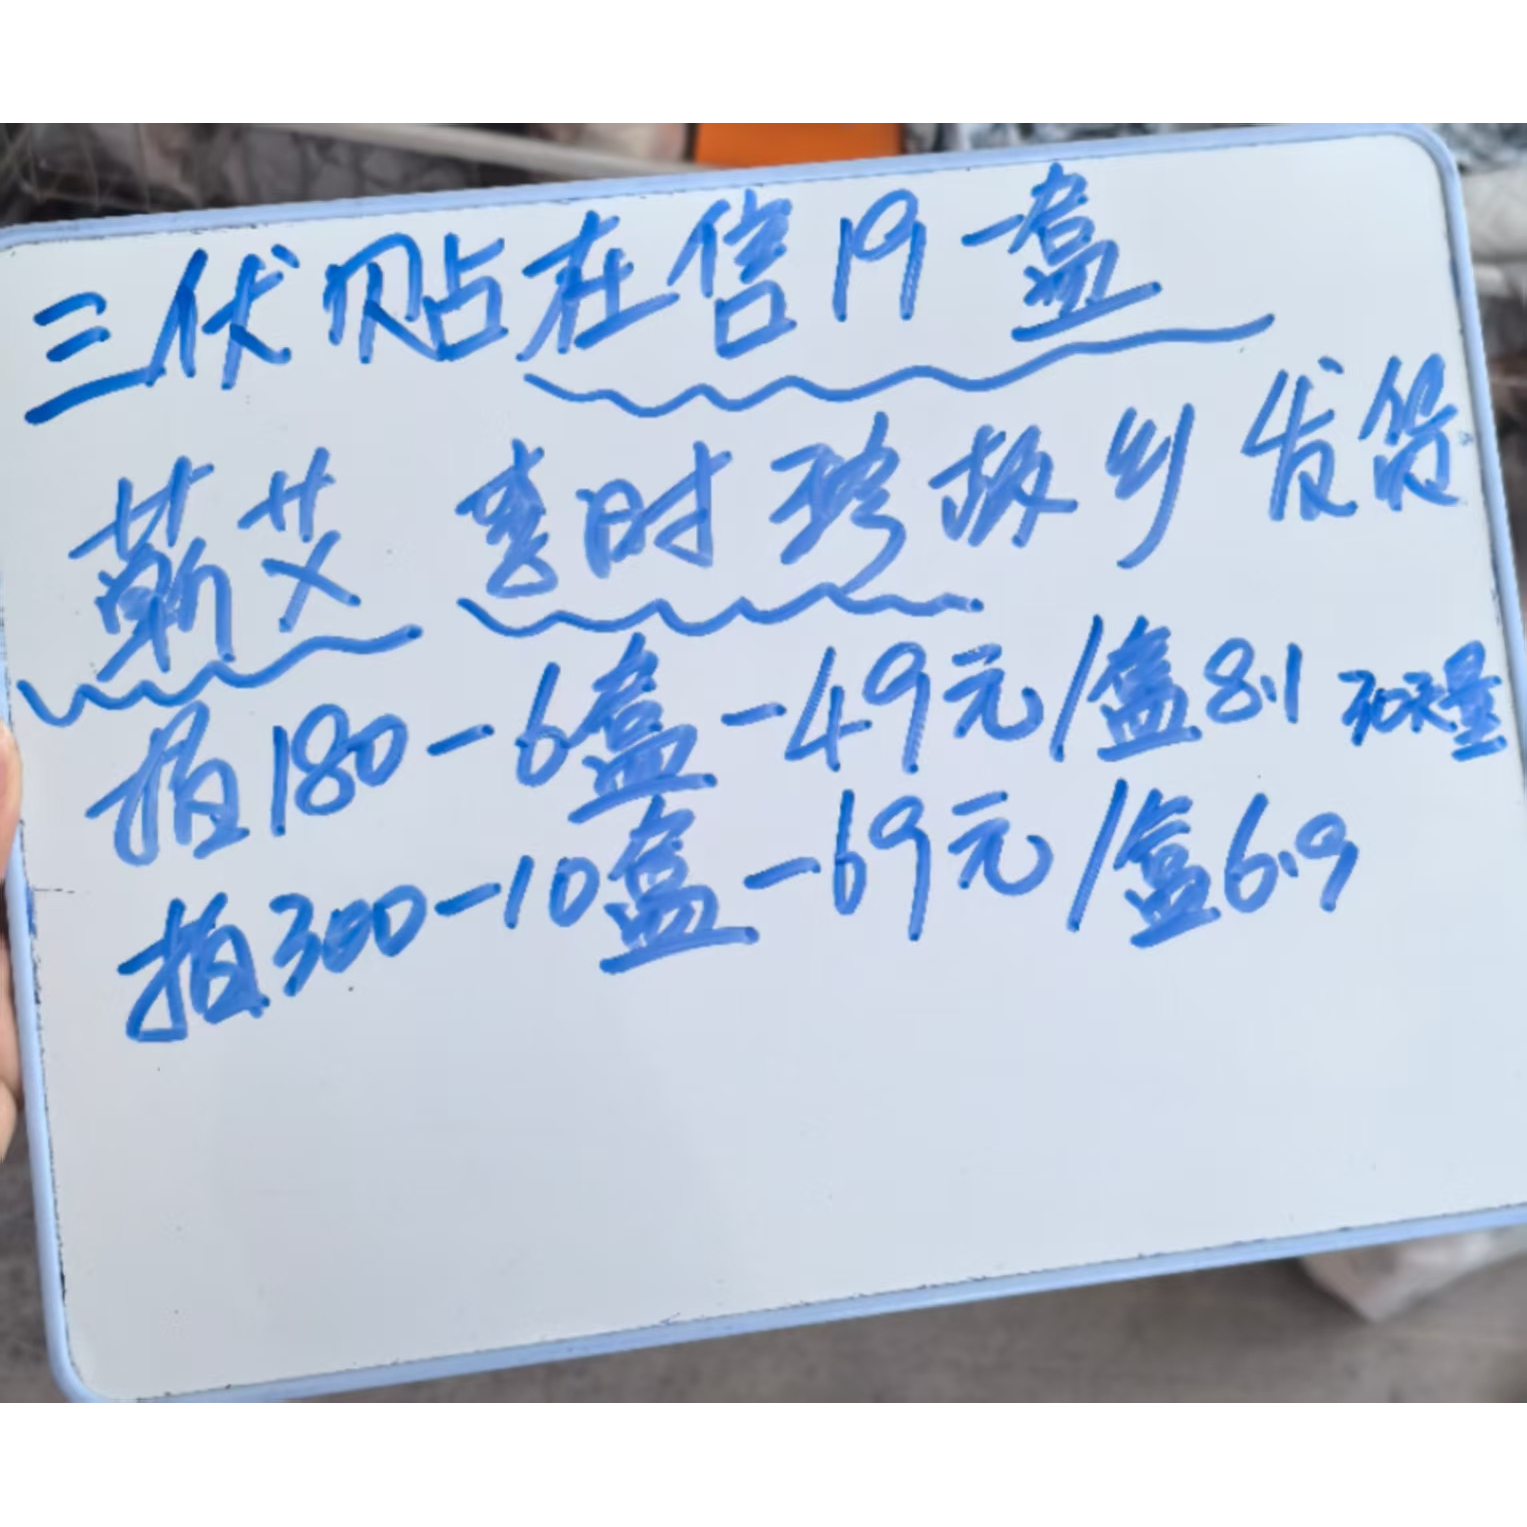 三伏贴在售19一盒
蕲艾 李时珍故乡 发货
拍180-6盒-49元/盒8.1 30天量
拍300-10盒-69元/盒6.9